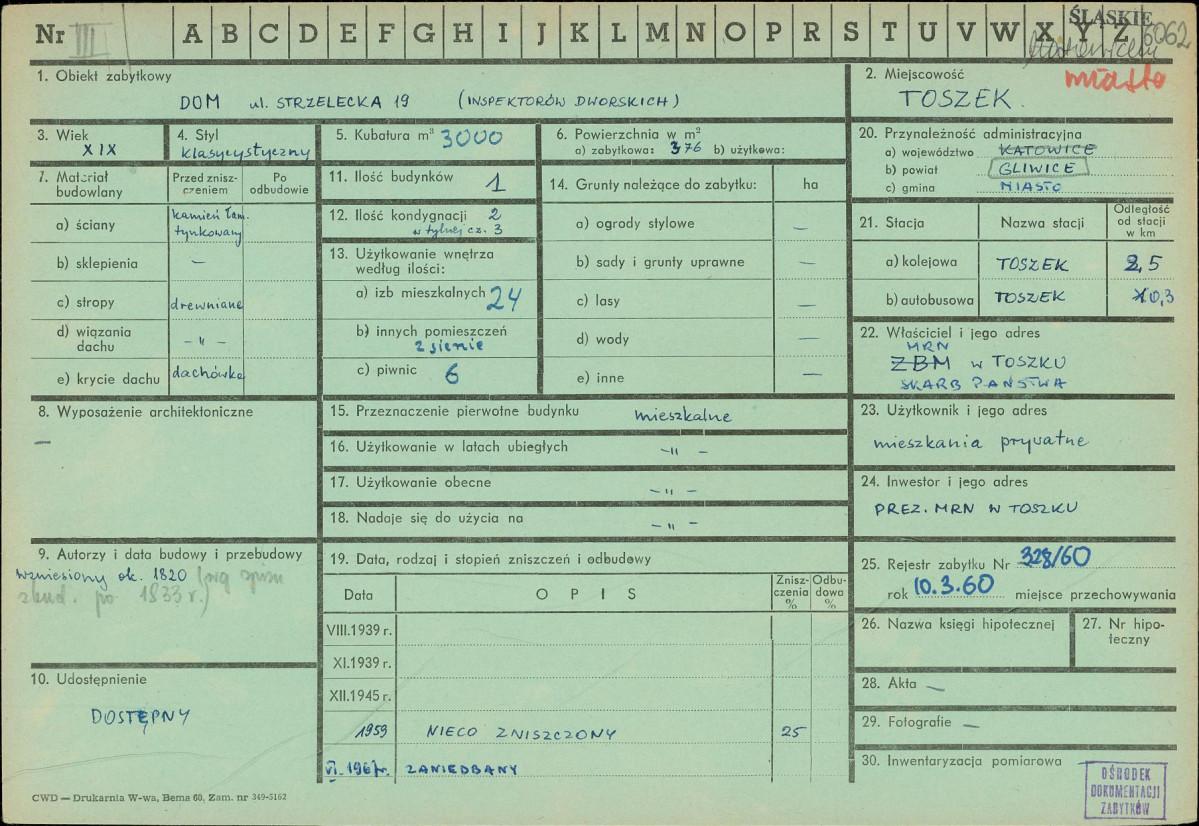 Nr III A B C D E F G H I J K L M N O P R S T U V W X Y Z
ŚLĄSKIE
6062
miasto
1. Obiekt zabytkowy
DOM ul. STRZELECKA 19 (INSPEKTORÓW DWORSKICH)
2. Miejscowość
TOSZEK.
3. Wiek
XIX
4. Styl
klasycystyczny
5. Kubatura m³ 3000
6. Powierzchnia w m²
a) zabytkowa: 376 b) użytkowa:
20. Przynależność administracyjna
a) województwo KATOWICE
b) powiat GLIWICE
c) gmina MIASTO
7. Materiał budowlany
Przed znisz-
czeniem
Po
odbudowie
a) ściany
kamień łam.
tynkowany
b) sklepienia –
c) stropy drewniane
d) wiązania
dachu – " –
e) krycie dachu dachówka
11. Ilość budynków 1
12. Ilość kondygnacji 2
w tylnej cz. 3
13. Użytkowanie wnętrza
według ilości:
a) izb mieszkalnych 24
b) innych pomieszczeń
2 sienie
c) piwnic 6
14. Grunty należące do zabytku: ha
a) ogrody stylowe –
b) sady i grunty uprawne –
c) lasy –
d) wody –
e) inne –
21. Stacja
Nazwa stacji
Odległość
od stacji
w km
a) kolejowa TOSZEK 2,5
b) autobusowa TOSZEK 0,3
22. Właściciel i jego adres
MRN
ZBM w TOSZKU
SKARB PAŃSTWA
8. Wyposażenie architektoniczne
–
15. Przeznaczenie pierwotne budynku mieszkalne
16. Użytkowanie w latach ubiegłych – " –
17. Użytkowanie obecne – " –
18. Nadaje się do użycia na – " –
23. Użytkownik i jego adres
mieszkania prywatne
24. Inwestor i jego adres
PREZ. MRN W TOSZKU
9. Autorzy i data budowy i przebudowy
wzniesiony ok. 1820 (wg spisu
zbud. po 1833 r.)
19. Data, rodzaj i stopień zniszczeń i odbudowy
Data
O P I S
Znisz-
czenia
%
Odbu-
dowa
%
VIII.1939 r.
XI.1939 r.
XII.1945 r.
1959 NIECO ZNISZCZONY 25
VI. 1967r. ZANIEDBANY
25. Rejestr zabytku Nr 328/60
rok 10.3.60 miejsce przechowywania
26. Nazwa księgi hipotecznej
27. Nr hipo-
teczny
10. Udostępnienie
DOSTĘPNY
28. Akta –
29. Fotografie –
30. Inwentaryzacja pomiarowa
OŚRODEK
DOKUMENTACJI
ZABYTKÓW
CWD — Drukarnia W-wa, Bema 60, Zam. nr 349-5162